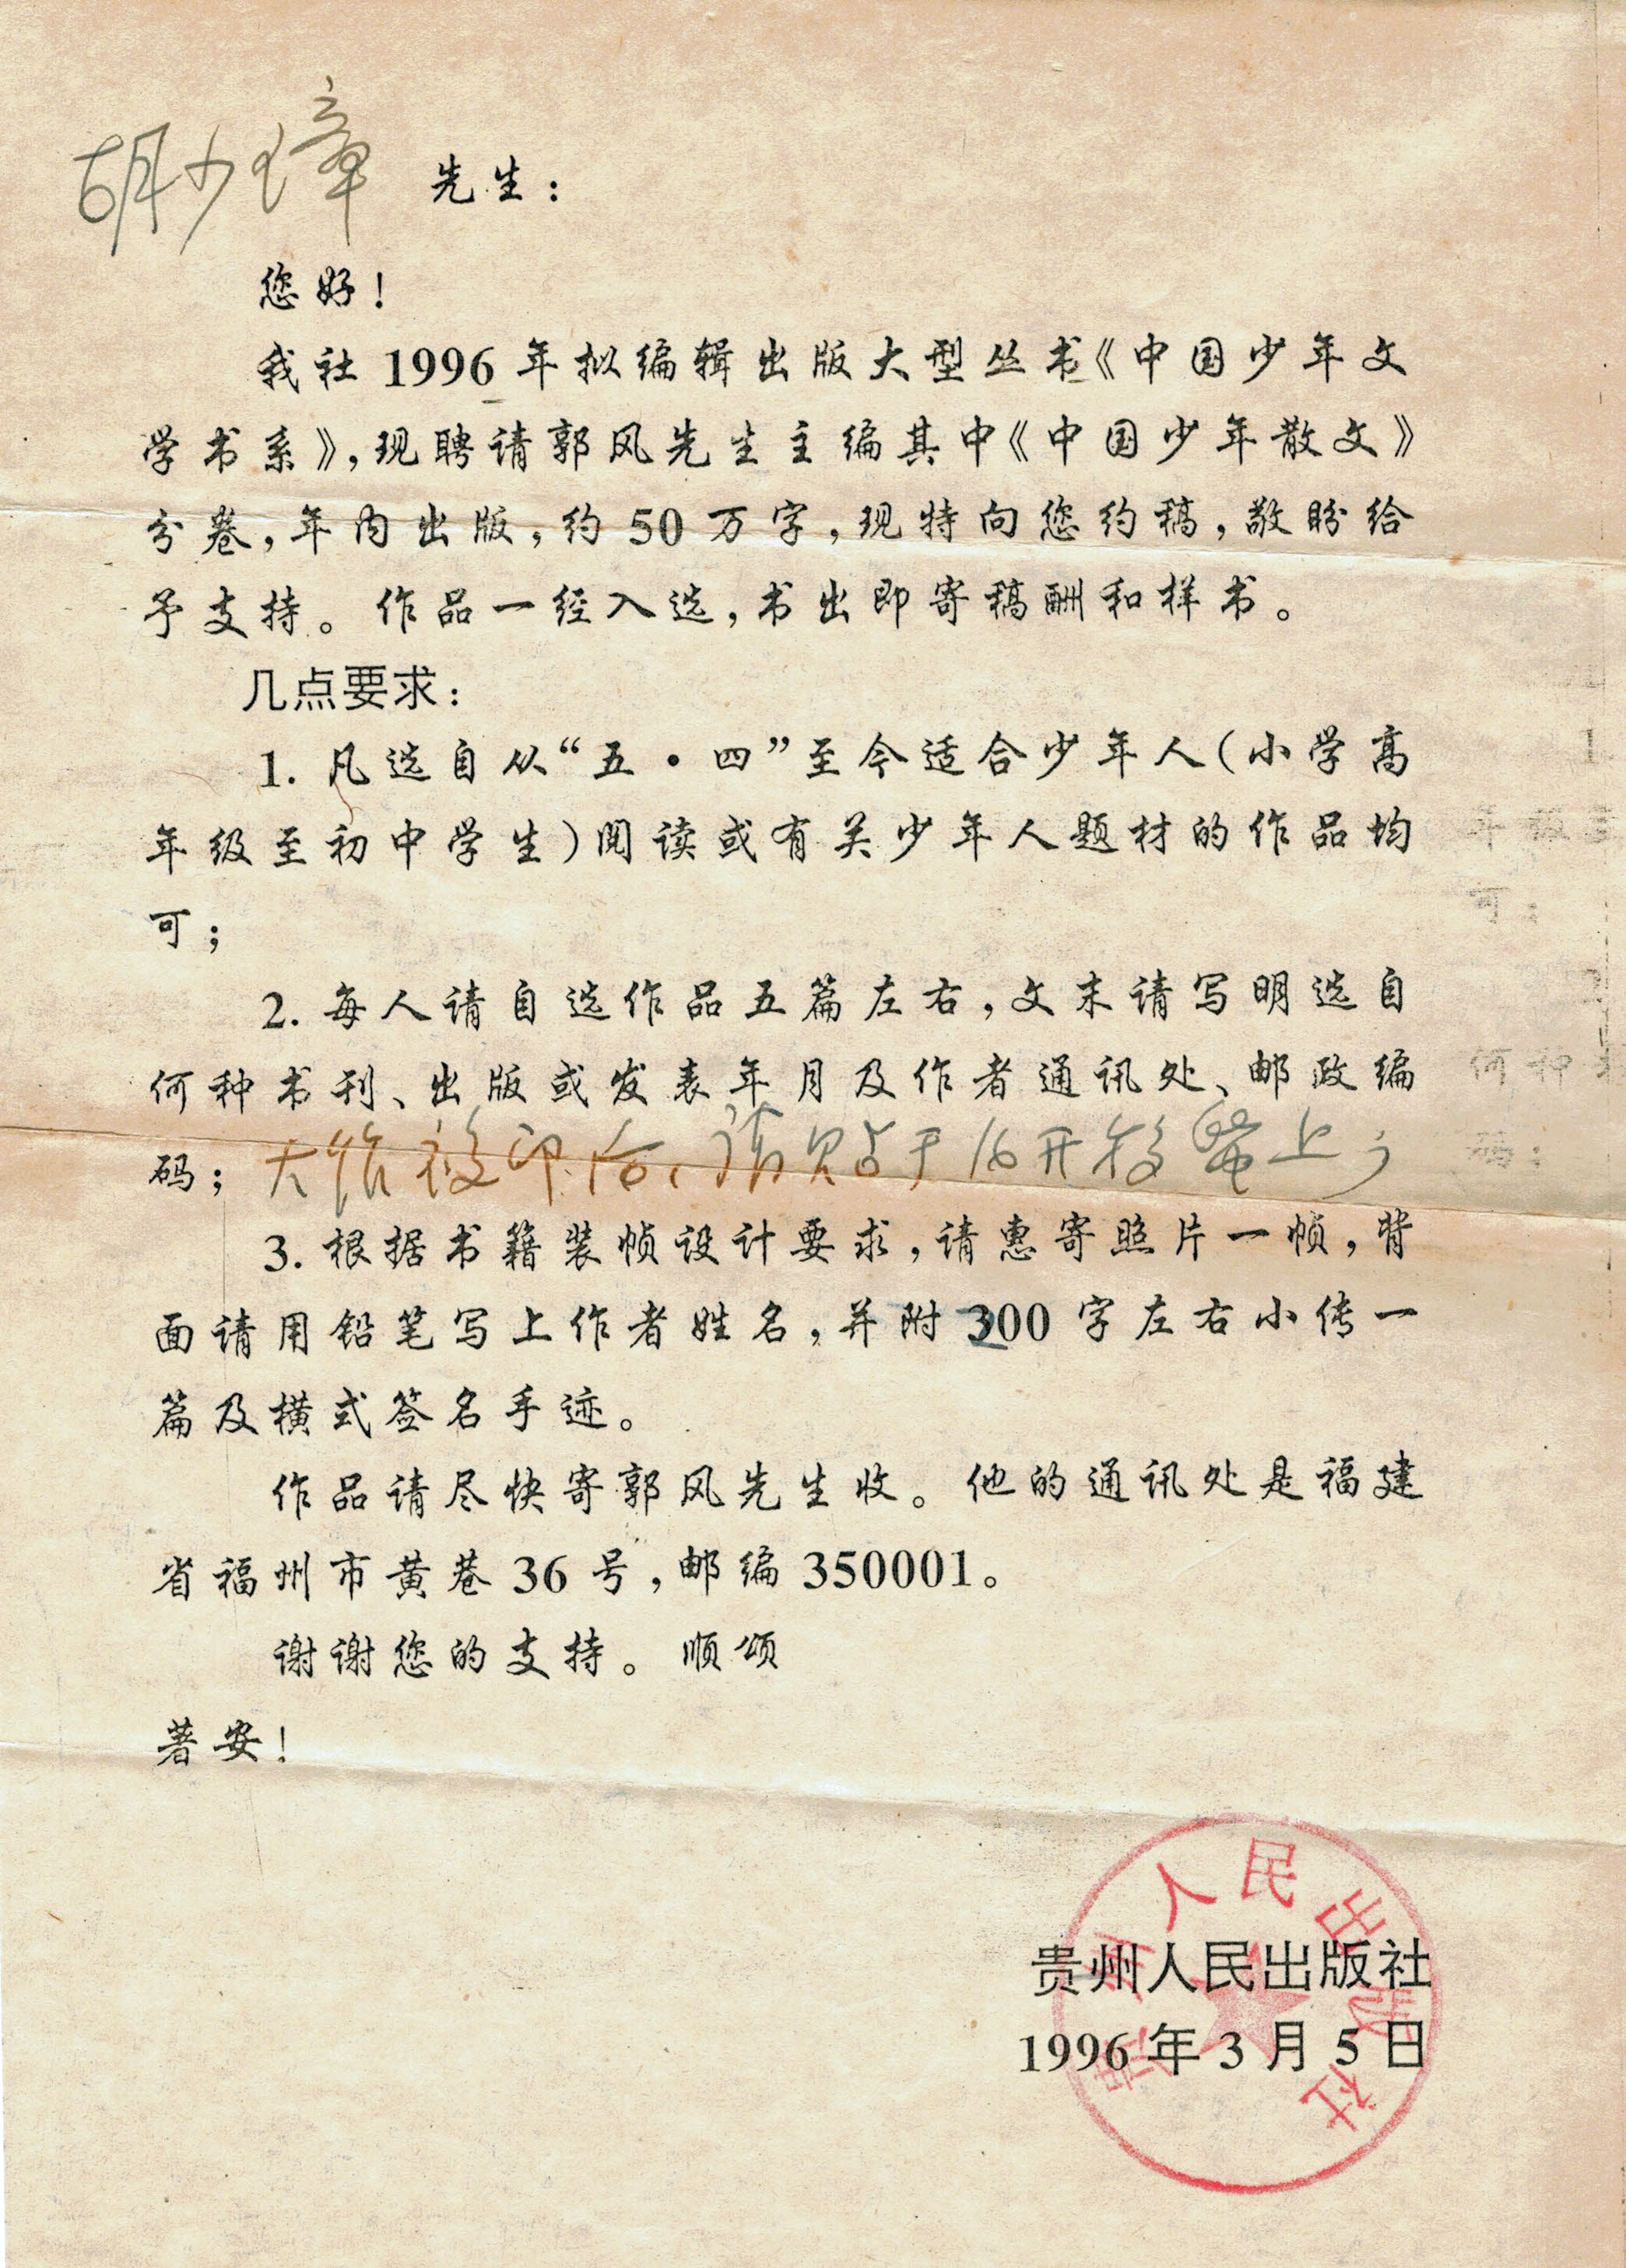 胡少璋 先生：
您好！
我社1996年拟编辑出版大型丛书《中国少年文
学书系》，现聘请郭风先生主编其中《中国少年散文》
分卷，年内出版，约50万字，现特向您约稿，敬盼给
予支持。作品一经入选，书出即寄稿酬和样书。
几点要求：
1. 凡选自从“五·四”至今适合少年人（小学高
年级至初中学生）阅读或有关少年人题材的作品均
可；
2. 每人请自选作品五篇左右，文末请写明选自
何种书刊、出版或发表年月及作者通讯处、邮政编
码；大作复印后，请贴于16开稿笺上，
3. 根据书籍装帧设计要求，请惠寄照片一帧，背
面请用铅笔写上作者姓名，并附300字左右小传一
篇及横式签名手迹。
作品请尽快寄郭风先生收。他的通讯处是福建
省福州市黄巷36号，邮编350001。
谢谢您的支持。顺颂
著安！
贵州人民出版社
1996年3月5日
人民出版社